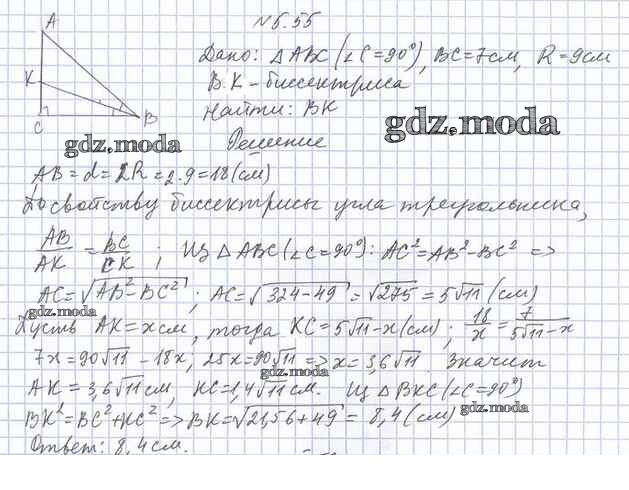 №5.55
A
K
C
B
Дано: △ABC (∠C=90°), BC=7см, R=9см
BK - биссектриса
Найти: BK
gdz.moda
gdz.moda
Решение
AB=d=2R=2·9=18(см)
По свойству биссектрисы угла треугольника,
AB/AK = BC/CK ; Из △ABC (∠C=90°): AC²=AB²-BC² =>
AC=√AB²-BC² ; AC=√324-49=√275=5√11 (см)
gdz.moda
Пусть AK=x см, тогда KC=5√11-x(см) ; 18/x = 7/5√11-x
7x=90√11-18x, 25x=90√11 => x=3,6√11. Значит
gdz.moda
AK=3,6√11см, KC=1,4√11см. Из △BKC (∠C=90°)
BK²=BC²+KC² => BK=√21,56+49 = 8,4(см)
gdz.moda
Ответ: 8,4см.